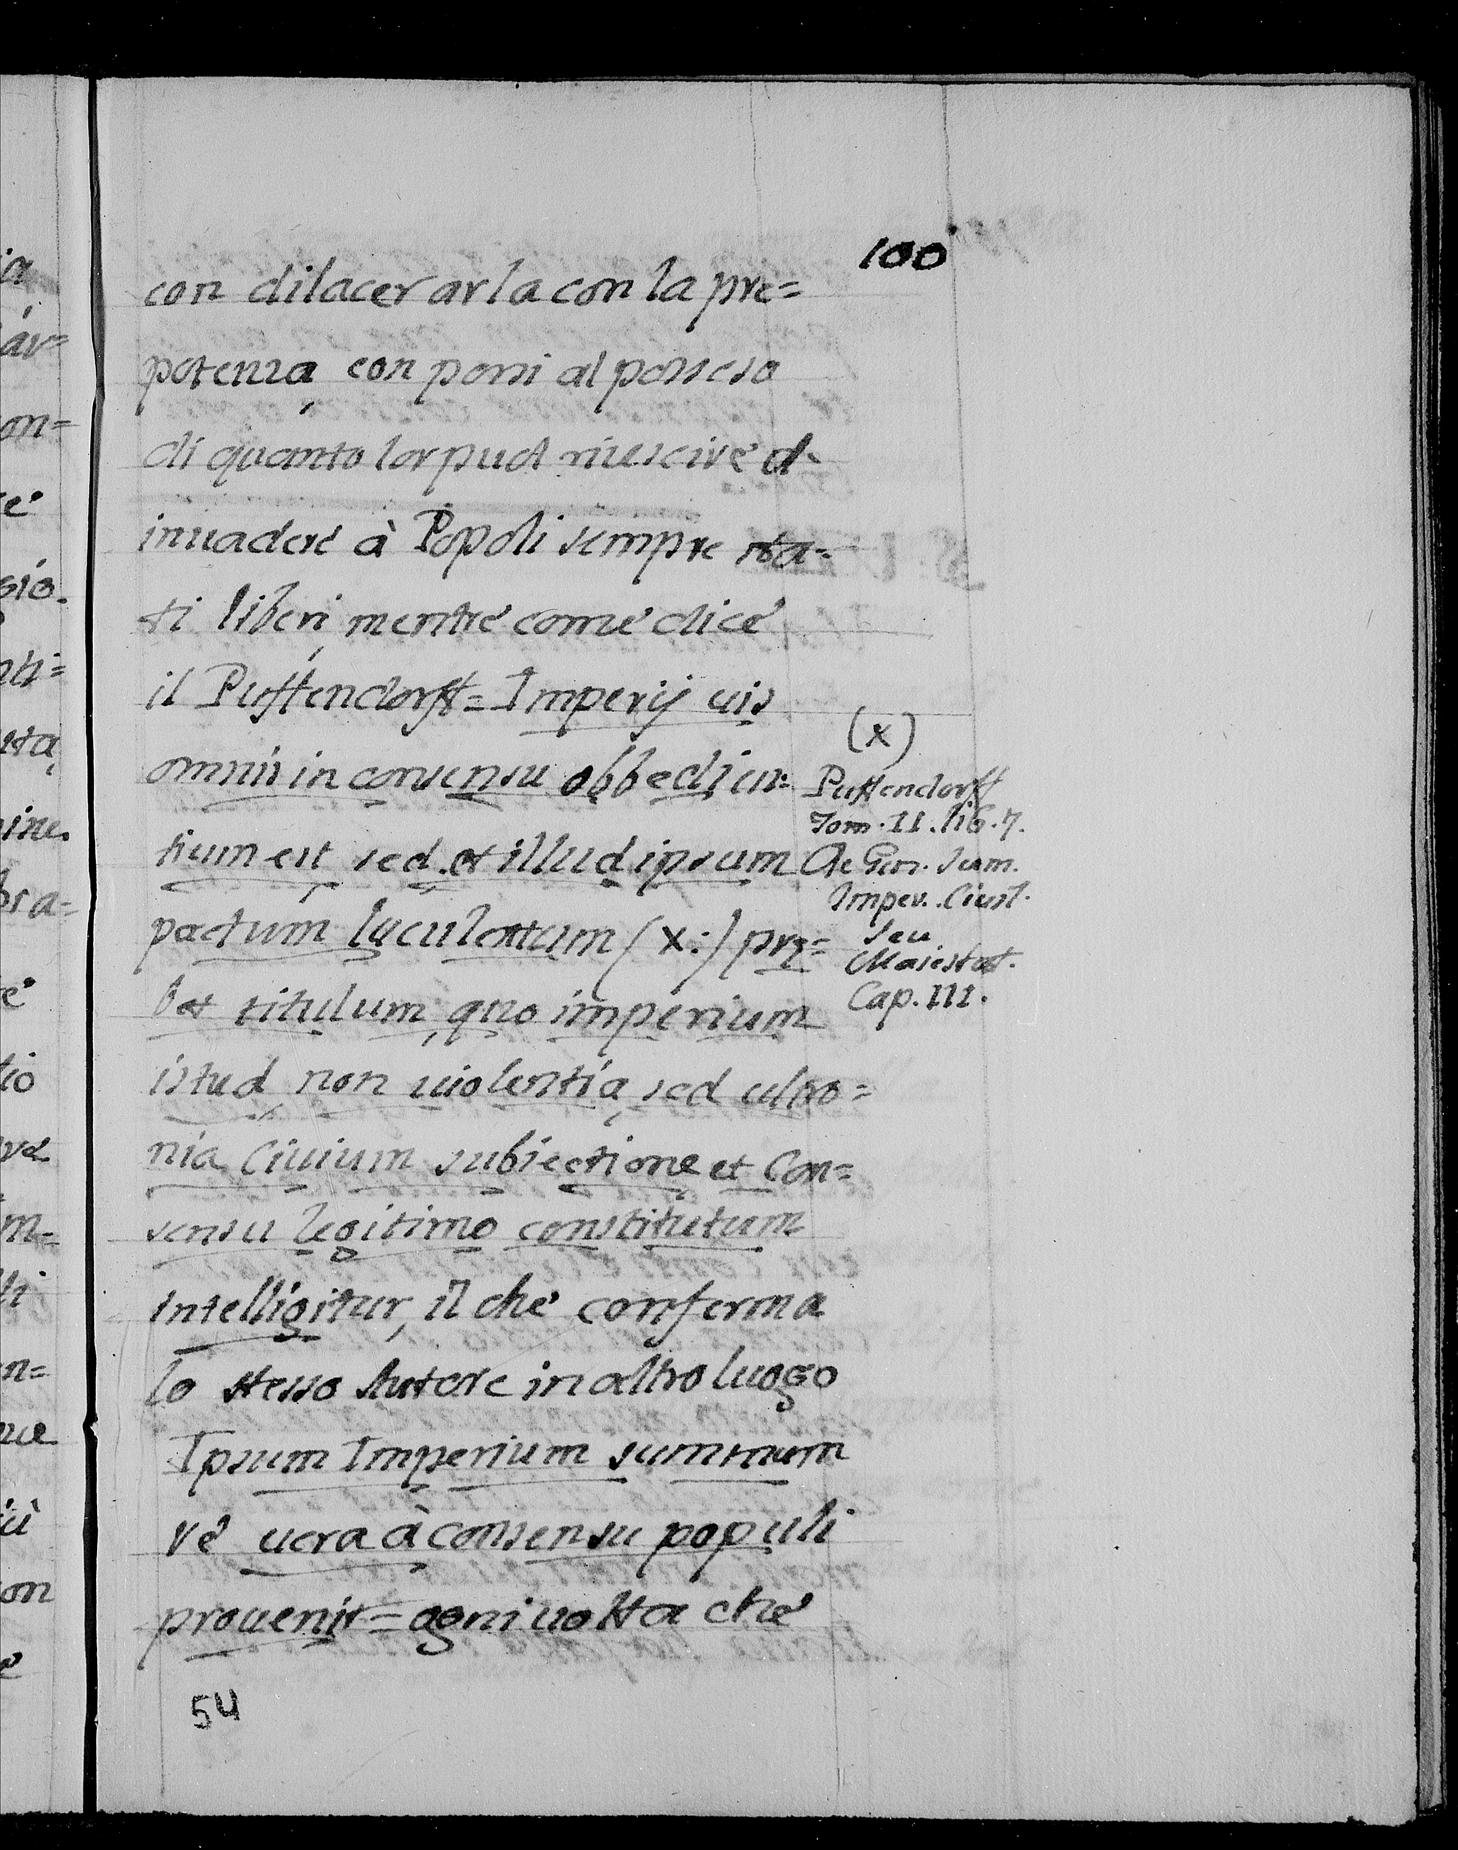 100
con dilacerarla con la pre=
potenza, con porsi al possesso
di quanto lor può riuscire d'
inuadere à Popoli sempre sta=
ti liberi, mentre come dice
il Puffendorff= Imperij uis
omnis in consensu obbedien=
tium est, sed et illud ipsum
pactum luculentum (x:) prę=
bet titulum, quo imperium
istud non uiolentia, sed ultro=
nia Ciuium subiectione et Con=
sensu legitimo constitutum
intelligitur, il che conferma
lo stesso Autore in altro luogo
Ipsum Imperium summum
re uera à consensu populi
prouenit= ogni uolta che
54
(x)
Puffendorff
Tom. II. lib. 7.
De Gen. Sum.
Imper. Ciuil.
seu
Maiestat.
Cap. III.